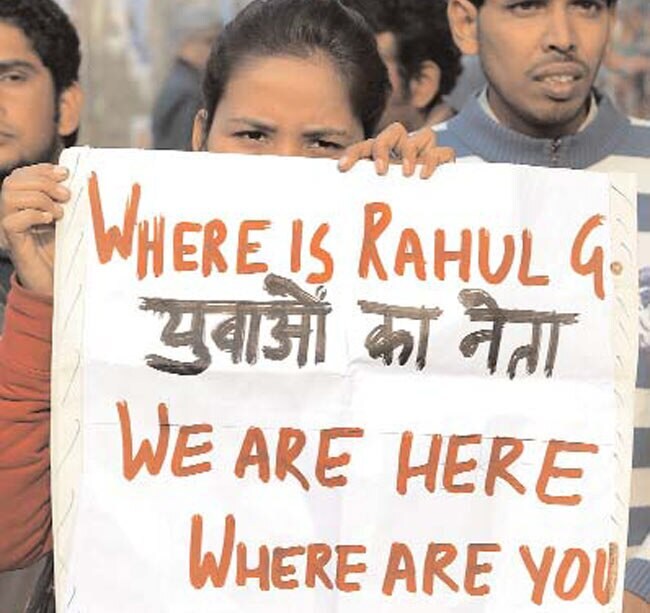 WHERE IS RAHUL G.
युवाओं का नेता
WE ARE HERE
WHERE ARE YOU